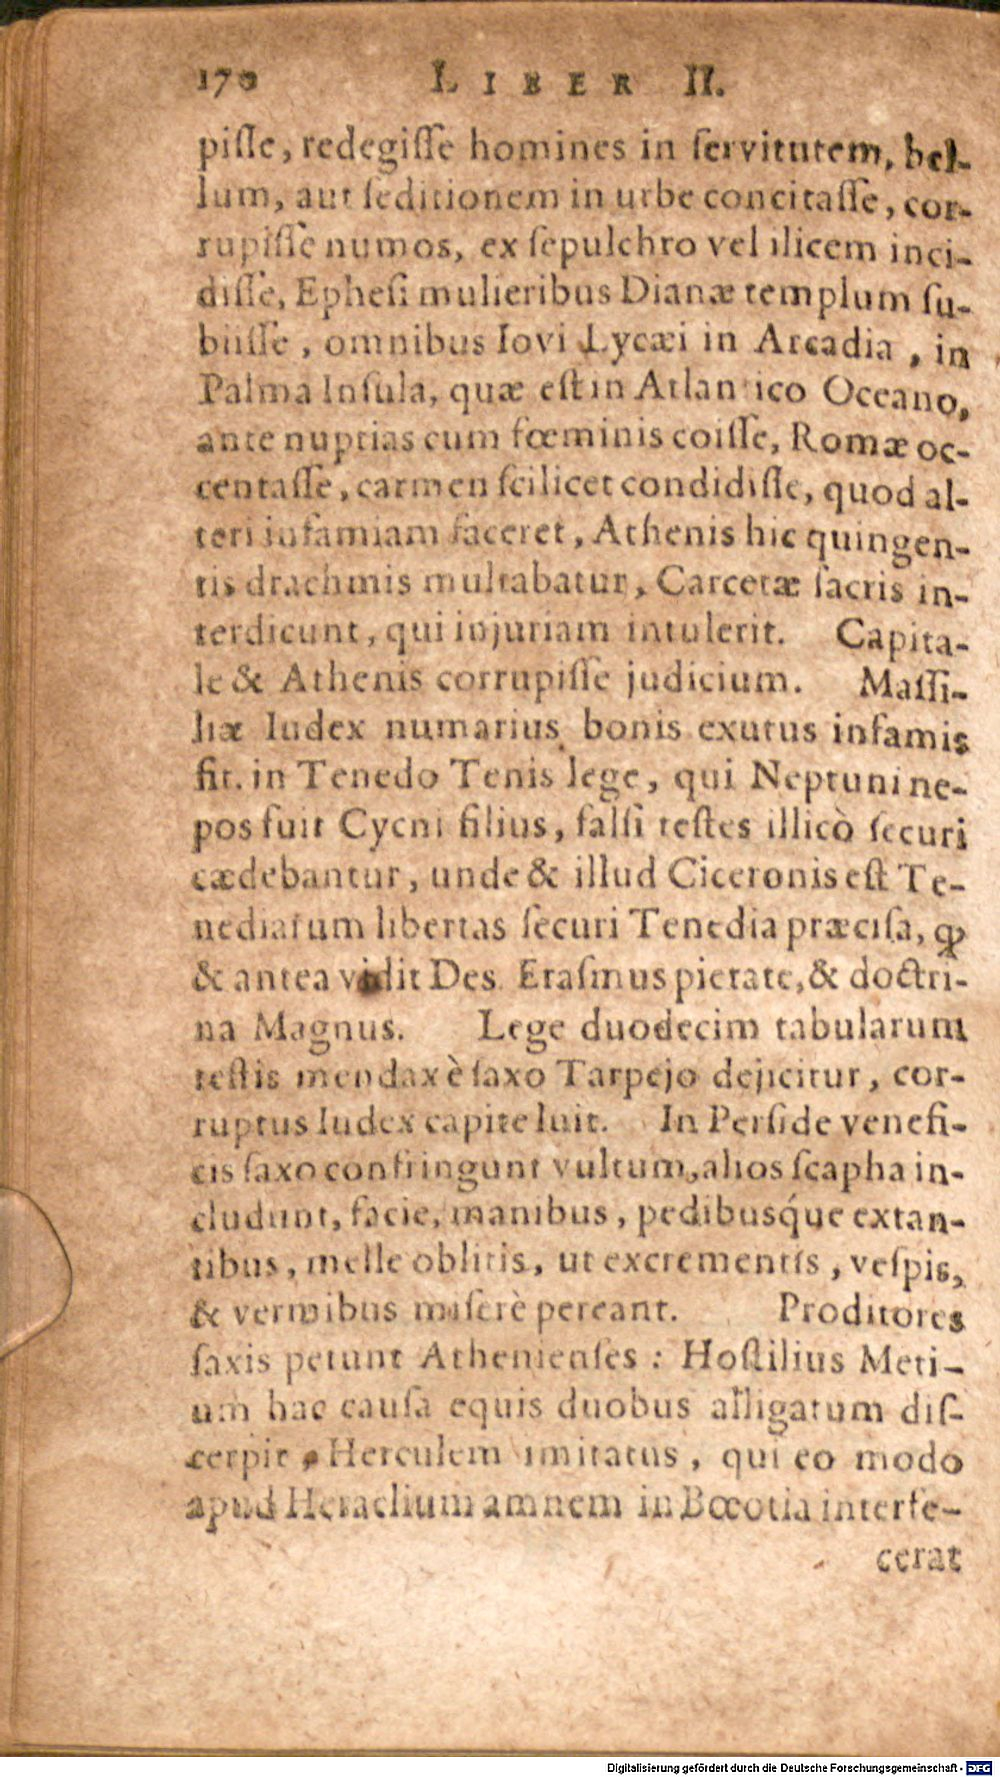 170 LIBER II.
piſſe, redegiſſe homines in ſervitutem, bel-
lum, aut ſeditionem in urbe concitaſſe, cor-
rupiſſe numos, ex ſepulchro vel ilicem inci-
diſſe, Epheſi mulieribus Dianæ templum ſu-
biiſſe, omnibus Iovi Lycæi in Arcadia, in
Palma Inſula, quæ eſt in Atlantico Oceano,
ante nuptias cum fœminis coiſſe, Romæ oc-
centaſſe, carmen ſcilicet condidiſſe, quod al-
teri infamiam faceret, Athenis hic quingen-
tis drachmis multabatur, Carcetæ ſacris in-
terdicunt, qui injuriam intulerit. Capita-
le & Athenis corrupiſſe judicium. Maſſi-
liæ Iudex numarius bonis exutus infamis
fit. in Tenedo Tenis lege, qui Neptuni ne-
pos fuit Cycni filius, falſi teſtes illicò ſecuri
cædebantur, unde & illud Ciceronis eſt Te-
nediarum libertas ſecuri Tenedia præciſa, ꝙ
& antea vidit Des. Eraſmus pietate, & doctri-
na Magnus. Lege duodecim tabularum
teſtis mendax è ſaxo Tarpejo dejicitur, cor-
ruptus Iudex capite luit. In Perſide venefi-
cis ſaxo confringunt vultum, alios ſcapha in-
cludunt, facie, manibus, pedibusq́ue extan-
tibus, melle oblitis, ut excrementis, veſpis,
& vermibus miſerè pereant. Proditores
ſaxis petunt Athenienſes: Hoſtilius Meti-
um hac cauſa equis duobus alligatum diſ-
cerpit, Herculem imitatus, qui eo modo
apud Heraclium amnem in Bœotia interfe-
cerat
Digitalisierung gefördert durch die Deutsche Forschungsgemeinschaft - DFG